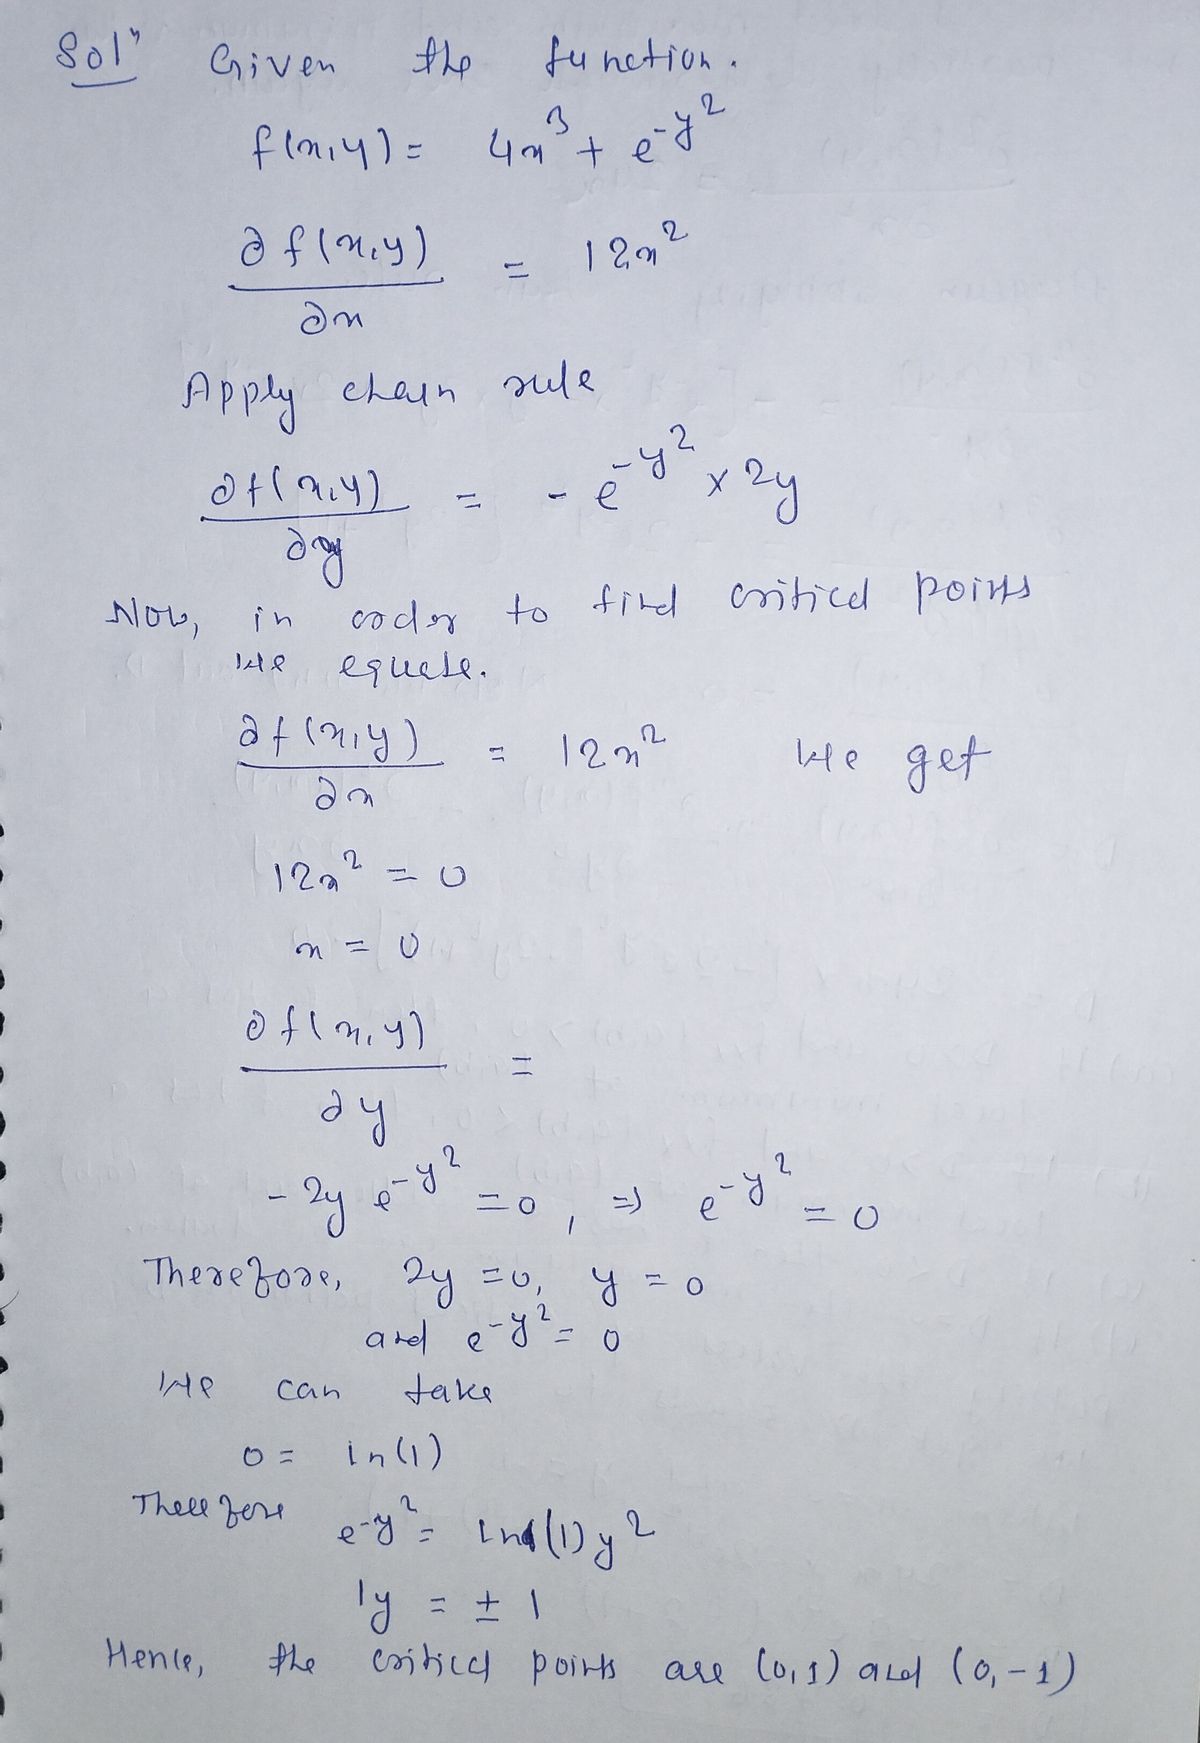 Solⁿ Given the function.
f(x,y) = 4x³ + e^-y²
∂f(x,y)/∂x = 12x²
Apply chain rule
∂f(x,y)/∂y = -e^-y² × 2y
Now, in order to find critical points
we equate.
∂f(x,y)/∂x = 12x² we get
12x² = 0
x = 0
∂f(x,y)/∂y =
-2y e^-y² = 0, ⇒ e^-y² = 0
Therefore, 2y = 0, y = 0
and e^-y² = 0
we can take
0 = ln(1)
Therefore e^-y² = ln(1) y²
1y = ± 1
Hence, the critical points are (0,1) and (0,-1)